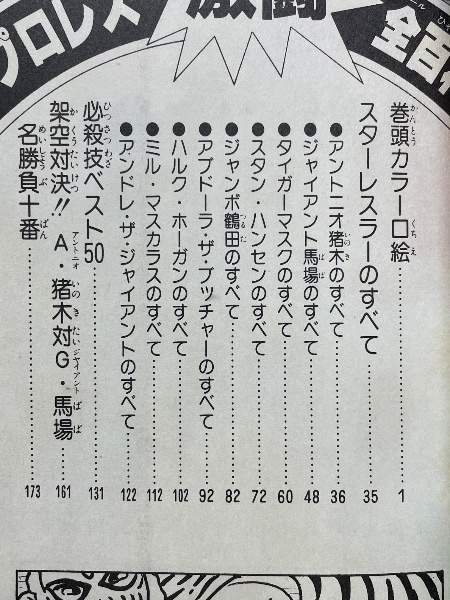 プロレス
激闘
全百科
巻頭カラー口絵 1
スターレスラーのすべて 35
●アントニオ猪木のすべて 36
●ジャイアント馬場のすべて 48
●タイガーマスクのすべて 60
●スタン・ハンセンのすべて 72
●ジャンボ鶴田のすべて 82
●アブドーラ・ザ・ブッチャーのすべて 92
●ハルク・ホーガンのすべて 102
●ミル・マスカラスのすべて 112
●アンドレ・ザ・ジャイアントのすべて 122
必殺技ベスト50 131
架空対決!! A・猪木対G・馬場 161
名勝負十番 173